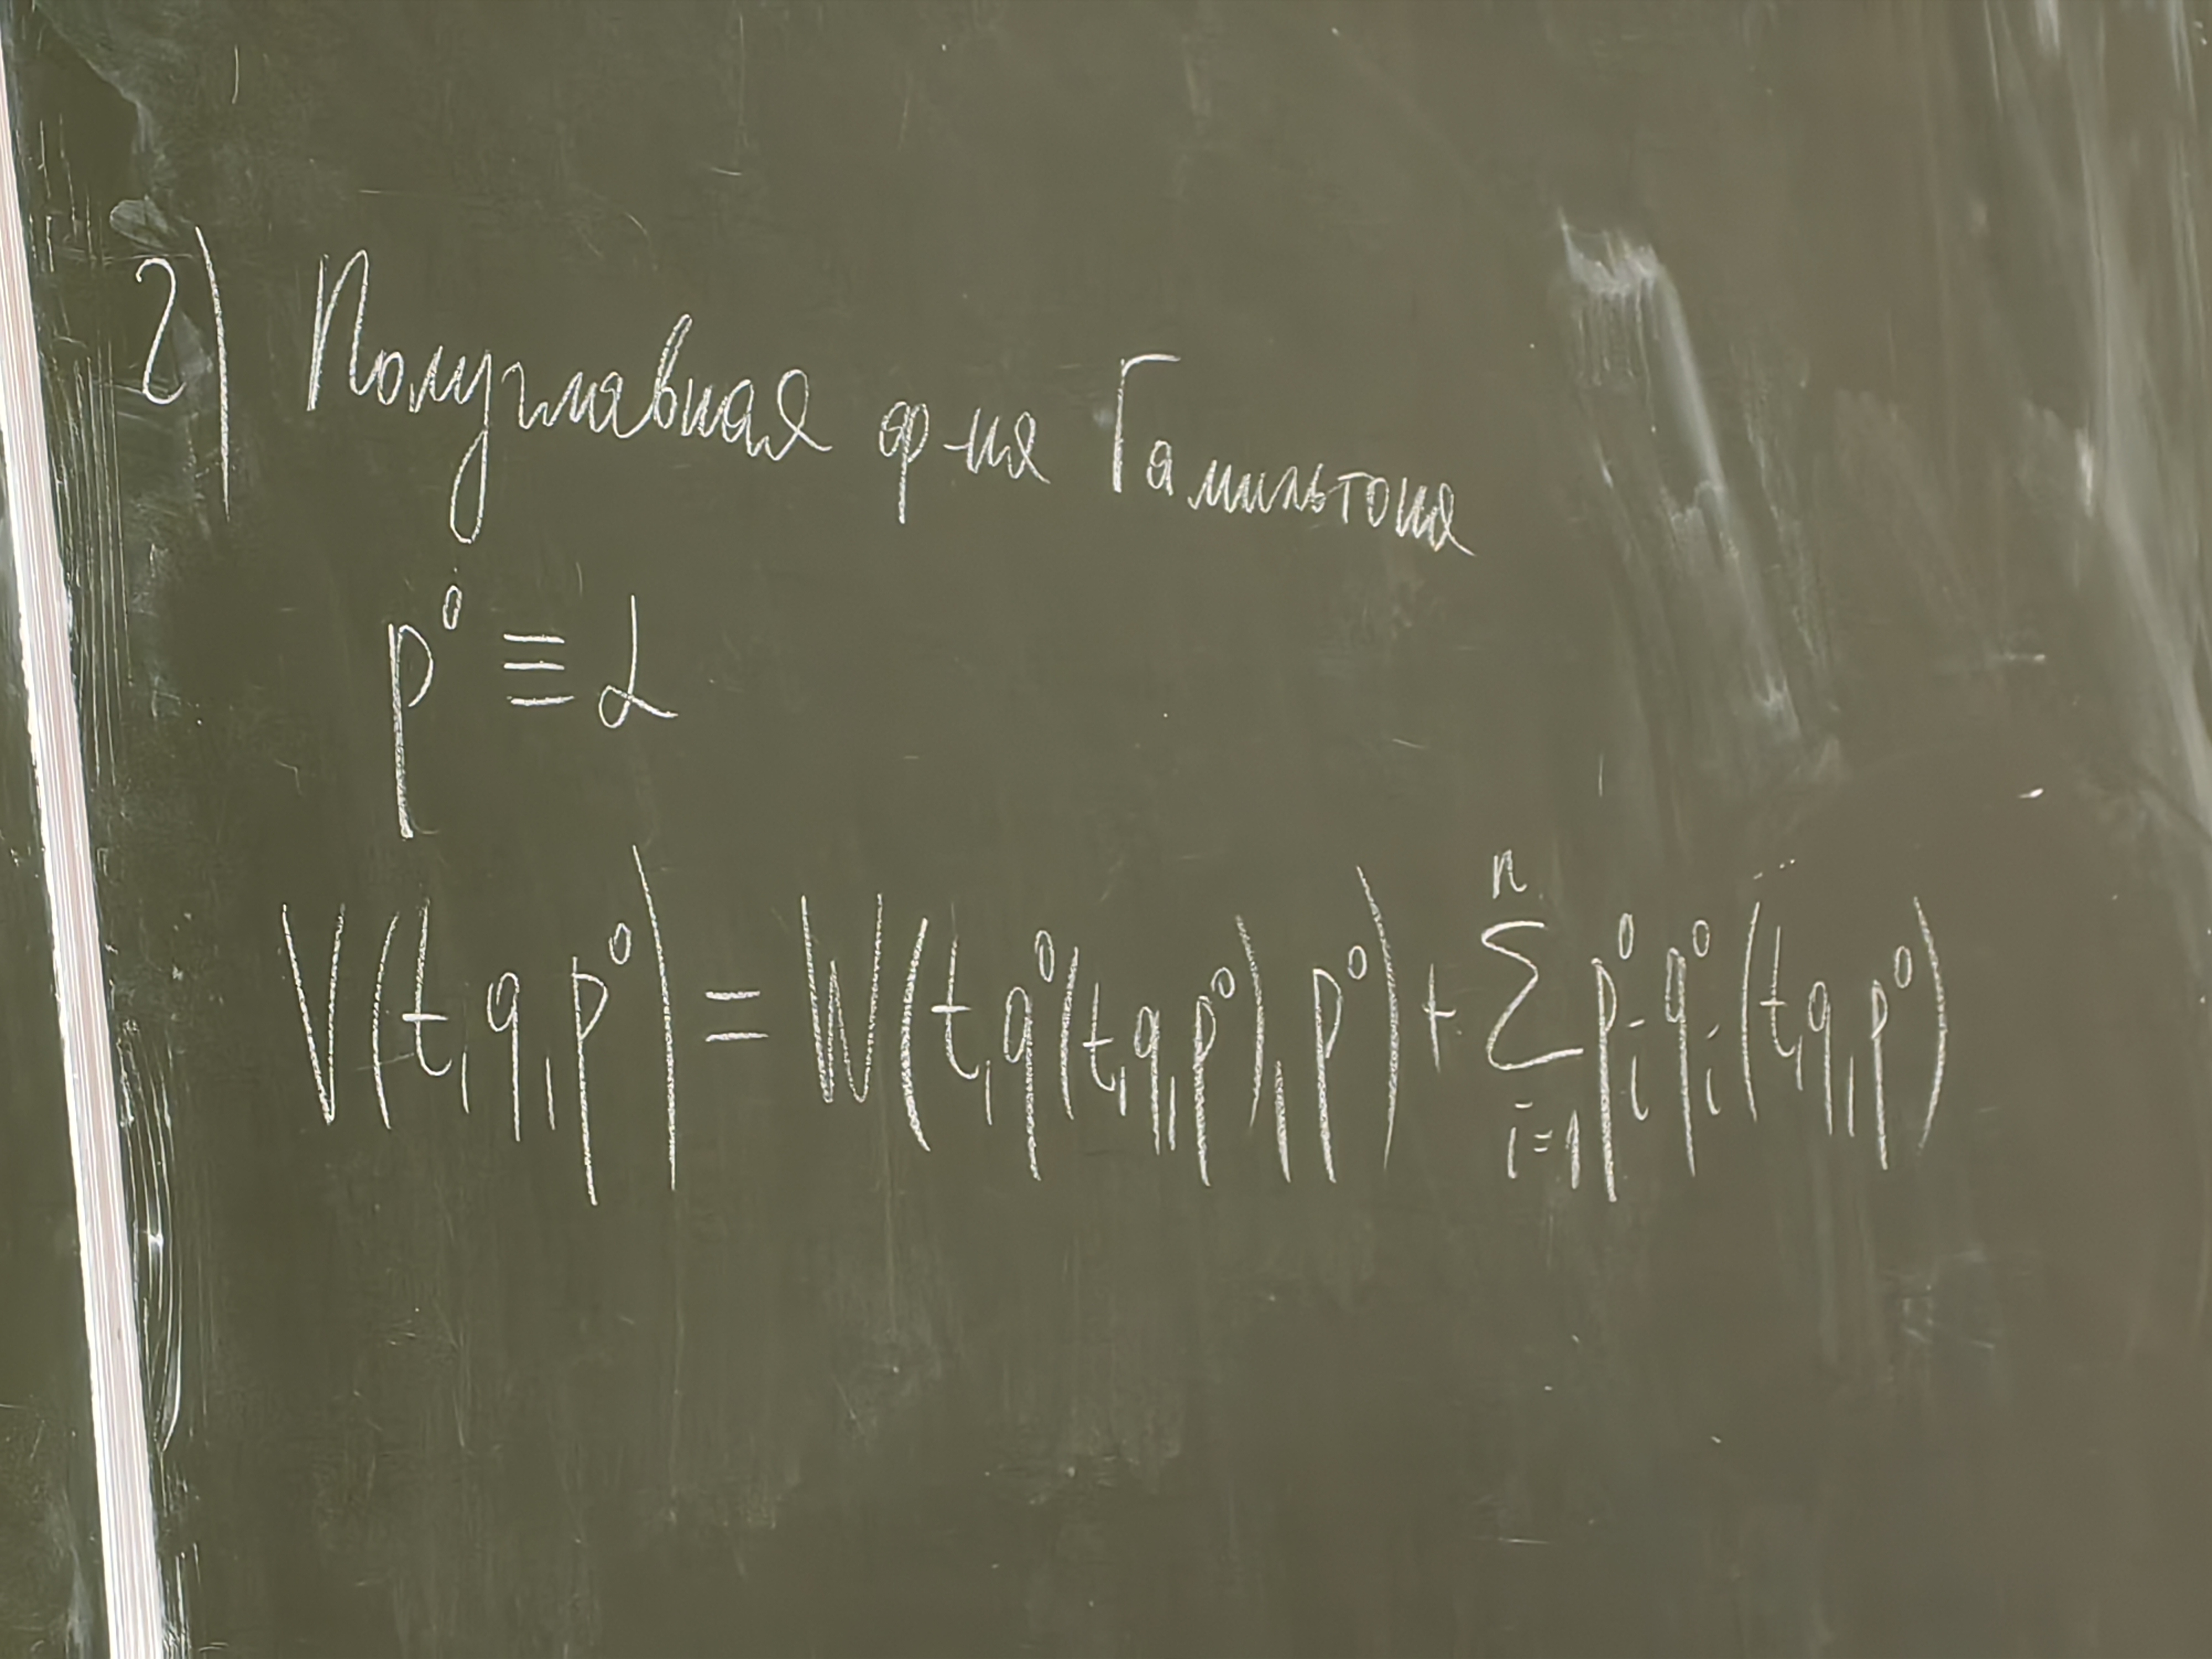 2) Полуглавная ф-ия Гамильтона
p⁰ ≡ α
V(t, q, p⁰) = W(t, q⁰(t, q, p⁰), p⁰) + ∑ⁿᵢ₌₁ pᵢ⁰ qᵢ⁰ (t, q, p⁰)